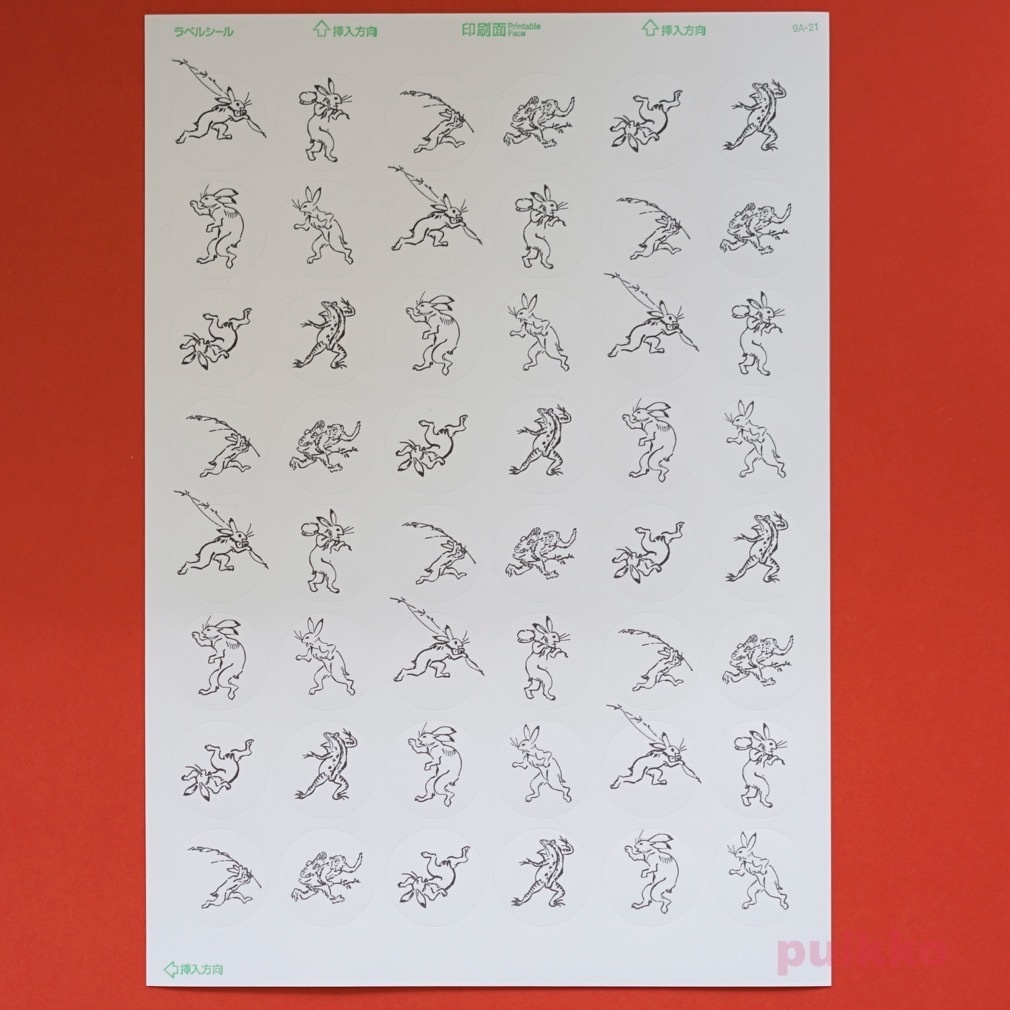 ラベルシール
挿入方向
印刷面 Printable Face
挿入方向
gA-21
挿入方向
pulkko